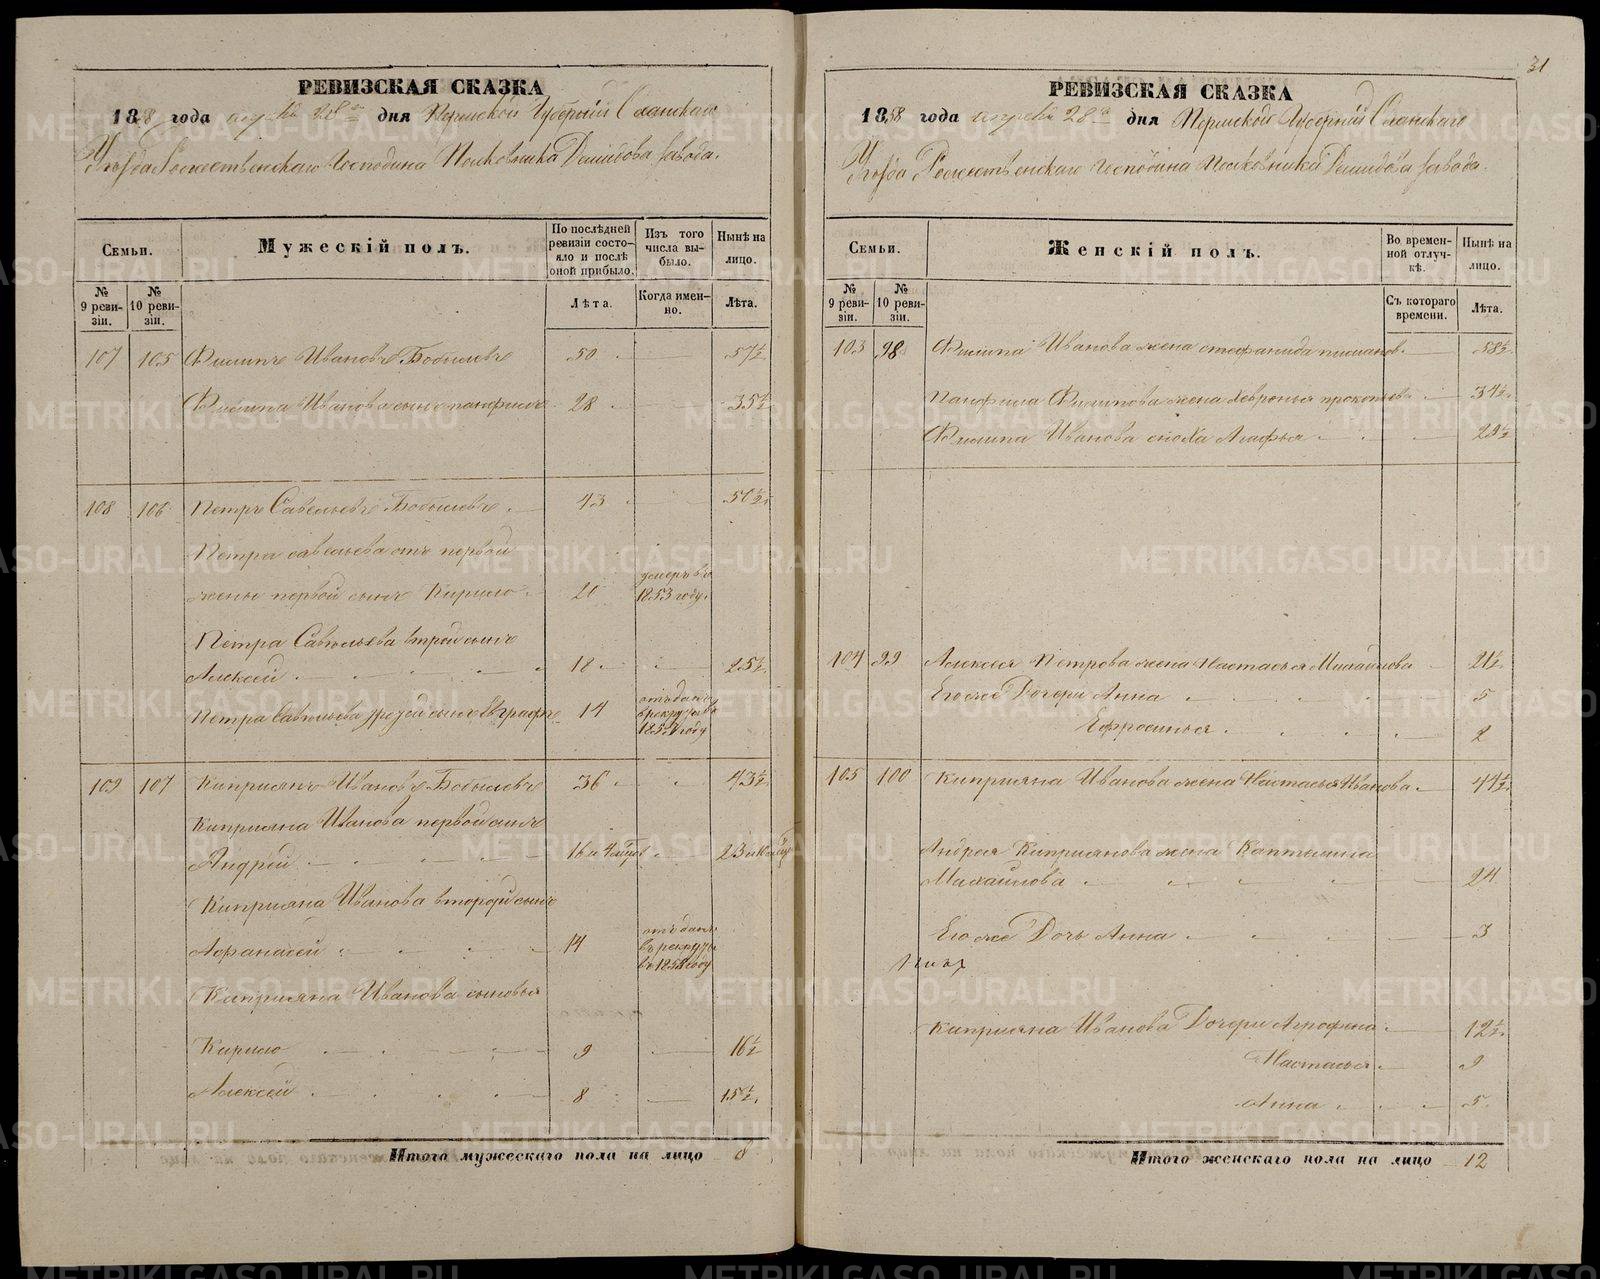 РЕВИЗСКАЯ СКАЗКА
1858 года апреля 28го дня Пермской Губерніи Оханскаго
Уѣзда Рождественскаго Господина Полковника Демидова завода.
Семьи.
№ 9 ревизіи.
№ 10 ревизіи.
Мужескій полъ.
По послѣдней ревизіи состояло и послѣ оной прибыло.
Лѣта.
Изъ того числа выбыло.
Когда именно.
Нынѣ на лицо.
Лѣта.
107 105 Филипъ Ивановъ Бобылевъ 50 57½
Филипа Иванова сынъ Панфилъ 28 35½
108 106 Петръ Савельевъ Бобылевъ 43 50½
Петра Савельева отъ первой
жены первой сынъ Кирило 20 умеръ въ 1853 году.
Петра Савельева второй сынъ
Алексей 18 25½
Петра Савельева третей сынъ Евграфъ 14 отъданъ в рекруты в году
109 107 Киприянъ Ивановъ Бобылевъ 36 43½
Киприяна Иванова первой сынъ
Андрей 16 и 4 мѣсяц 23
Киприяна Иванова второй сынъ
Афанасей 14 отъданъ в рекруты въ 1858 году
Киприяна Иванова сыновья
Кирило 9 16½
Алексей 8 15½
Итого мужескаго пола на лицо 8
31
РЕВИЗСКАЯ СКАЗКА
1858 года апреля 28го дня Пермской Губерніи Оханскаго
Уѣзда Рождественскаго Господина Полковника Демидова завода.
Семьи.
№ 9 ревизіи.
№ 10 ревизіи.
Женскій полъ.
Во временной отлучкѣ.
Съ котораго времени.
Нынѣ на лицо.
Лѣта.
103 98 Филипа Иванова жена Стефанида 58½
Панфила Филипова жена Хевронья Прокопьев 34½
Филипа Иванова сноха Агафья 29½
104 99 Алексея Петрова жена Настасья Михайлова 21½
Его же Дочери Анна 5
Ефросинья 2
105 100 Киприяна Иванова жена Настасья Иванова 44½
Андрея Киприянова жена Каптелина
Михайлова 24
Его же Дочь Анна 3
Киприяна Иванова Дочери Агрофина 12½
Настасья 9
Анна 5
Итого женскаго пола на лицо 12
METRIKI.GASO-URAL.RU